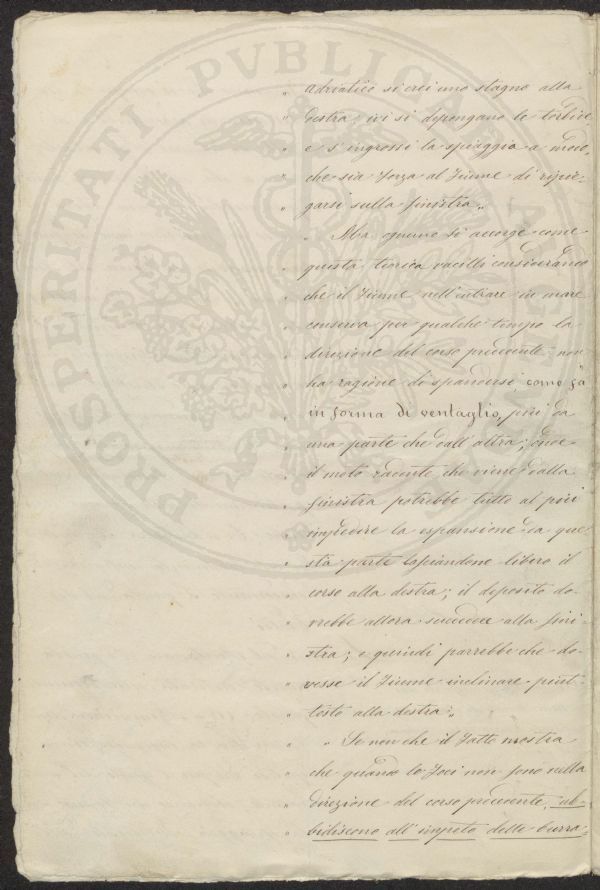 PROSPERITATI PVBLICAE
" adriatico si crei uno stagno alla
" destra; ivi si depongano le torbide,
" e s'ingrossi la spiaggia a modo,
" che sia forza al fiume di ripie-
" garsi sulla sinistra„
" " Ma ognuno si accorge come
" questa teorica vacilli considerando
" che il fiume nell'entrare in mare
" conserva per qualche tempo la
" direzione del corso precedente; non
" ha ragione di spandersi come fa
" in forma di ventaglio, più da
" una parte che dall'altra; onde
" il moto radente che viene dalla
" sinistra potrebbe tutto al più
" impedire la espansione da que-
" sta parte lasciandone libero il
" corso alla destra; il deposito do-
" vrebbe allora succedere alla sini-
" stra; e quindi parrebbe che do-
" vesse il fiume inclinare piut-
" tosto alla destra„
" " Se non che il fatto mostra
" che quando le foci non sono nella
" direzione del corso precedente, ub-
" bidiscono all'impeto delle burra-